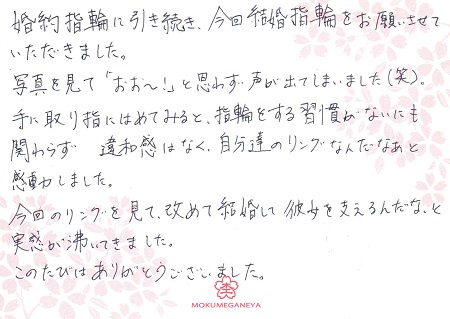 婚約指輪に引き続き、今回結婚指輪をお願いさせて
いただきました。
写真を見て「おお〜!」と思わず声が出てしまいました(笑)。
手に取り指にはめてみると、指輪をする習慣がないにも
関わらず 違和感はなく、自分達のリングなんだなあと
感動しました。
今回のリングを見て、改めて結婚して彼女を支えるんだな、と
実感が沸いてきました。
このたびはありがとうございました。
MOKUMEGANEYA